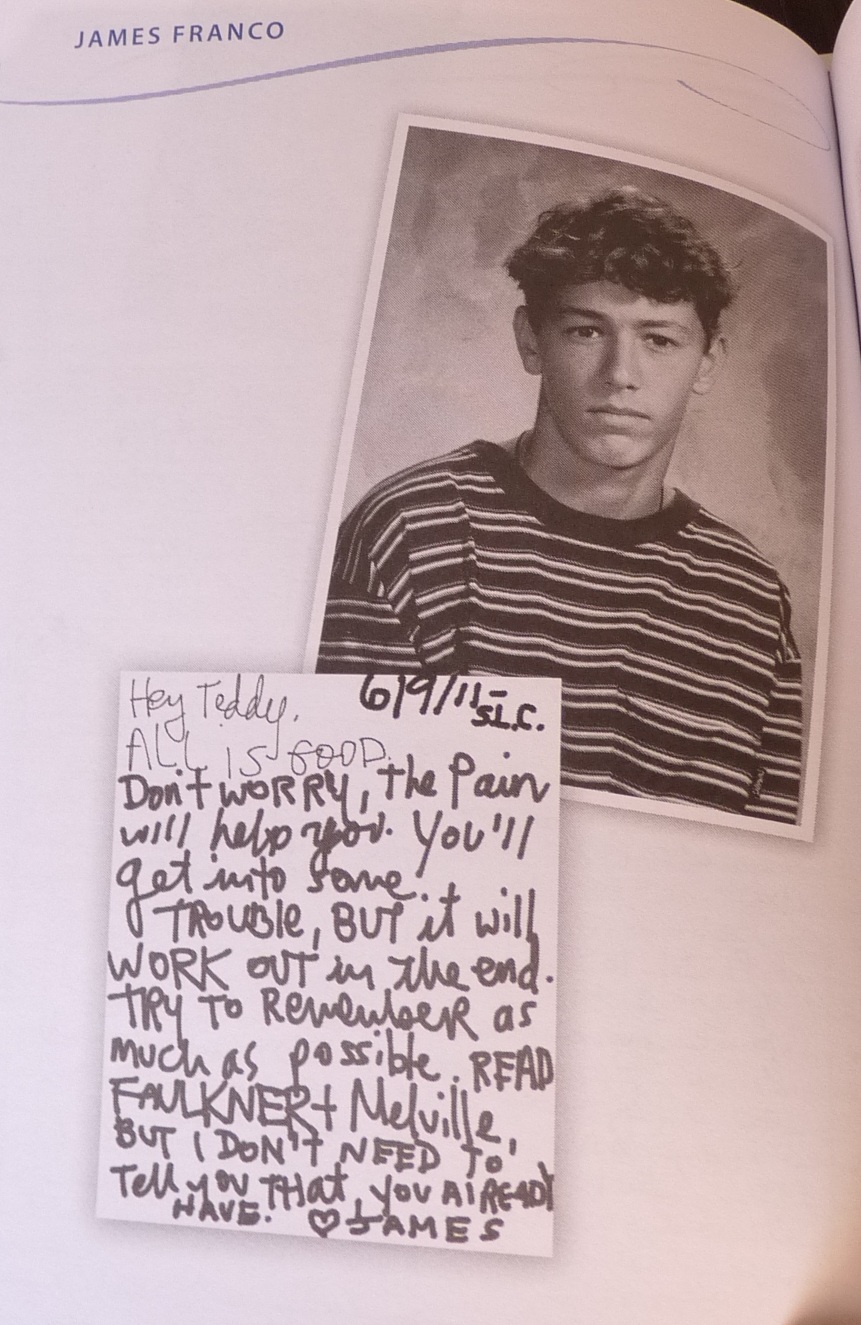 JAMES FRANCO
Hey Teddy, 6/9/11-
S.L.C.
ALL IS GOOD.
Don't WORRY, the Pain
will help you. You'll
get into some
TROUBLE, BUT it will
WORK OUT in the end.
TRY TO RemembeR as
much as possible. READ
FAULKNER + Melville,
BUT I DON'T NEED TO
Tell you THAT, you AlREADY
HAVE. ♡ JAMES